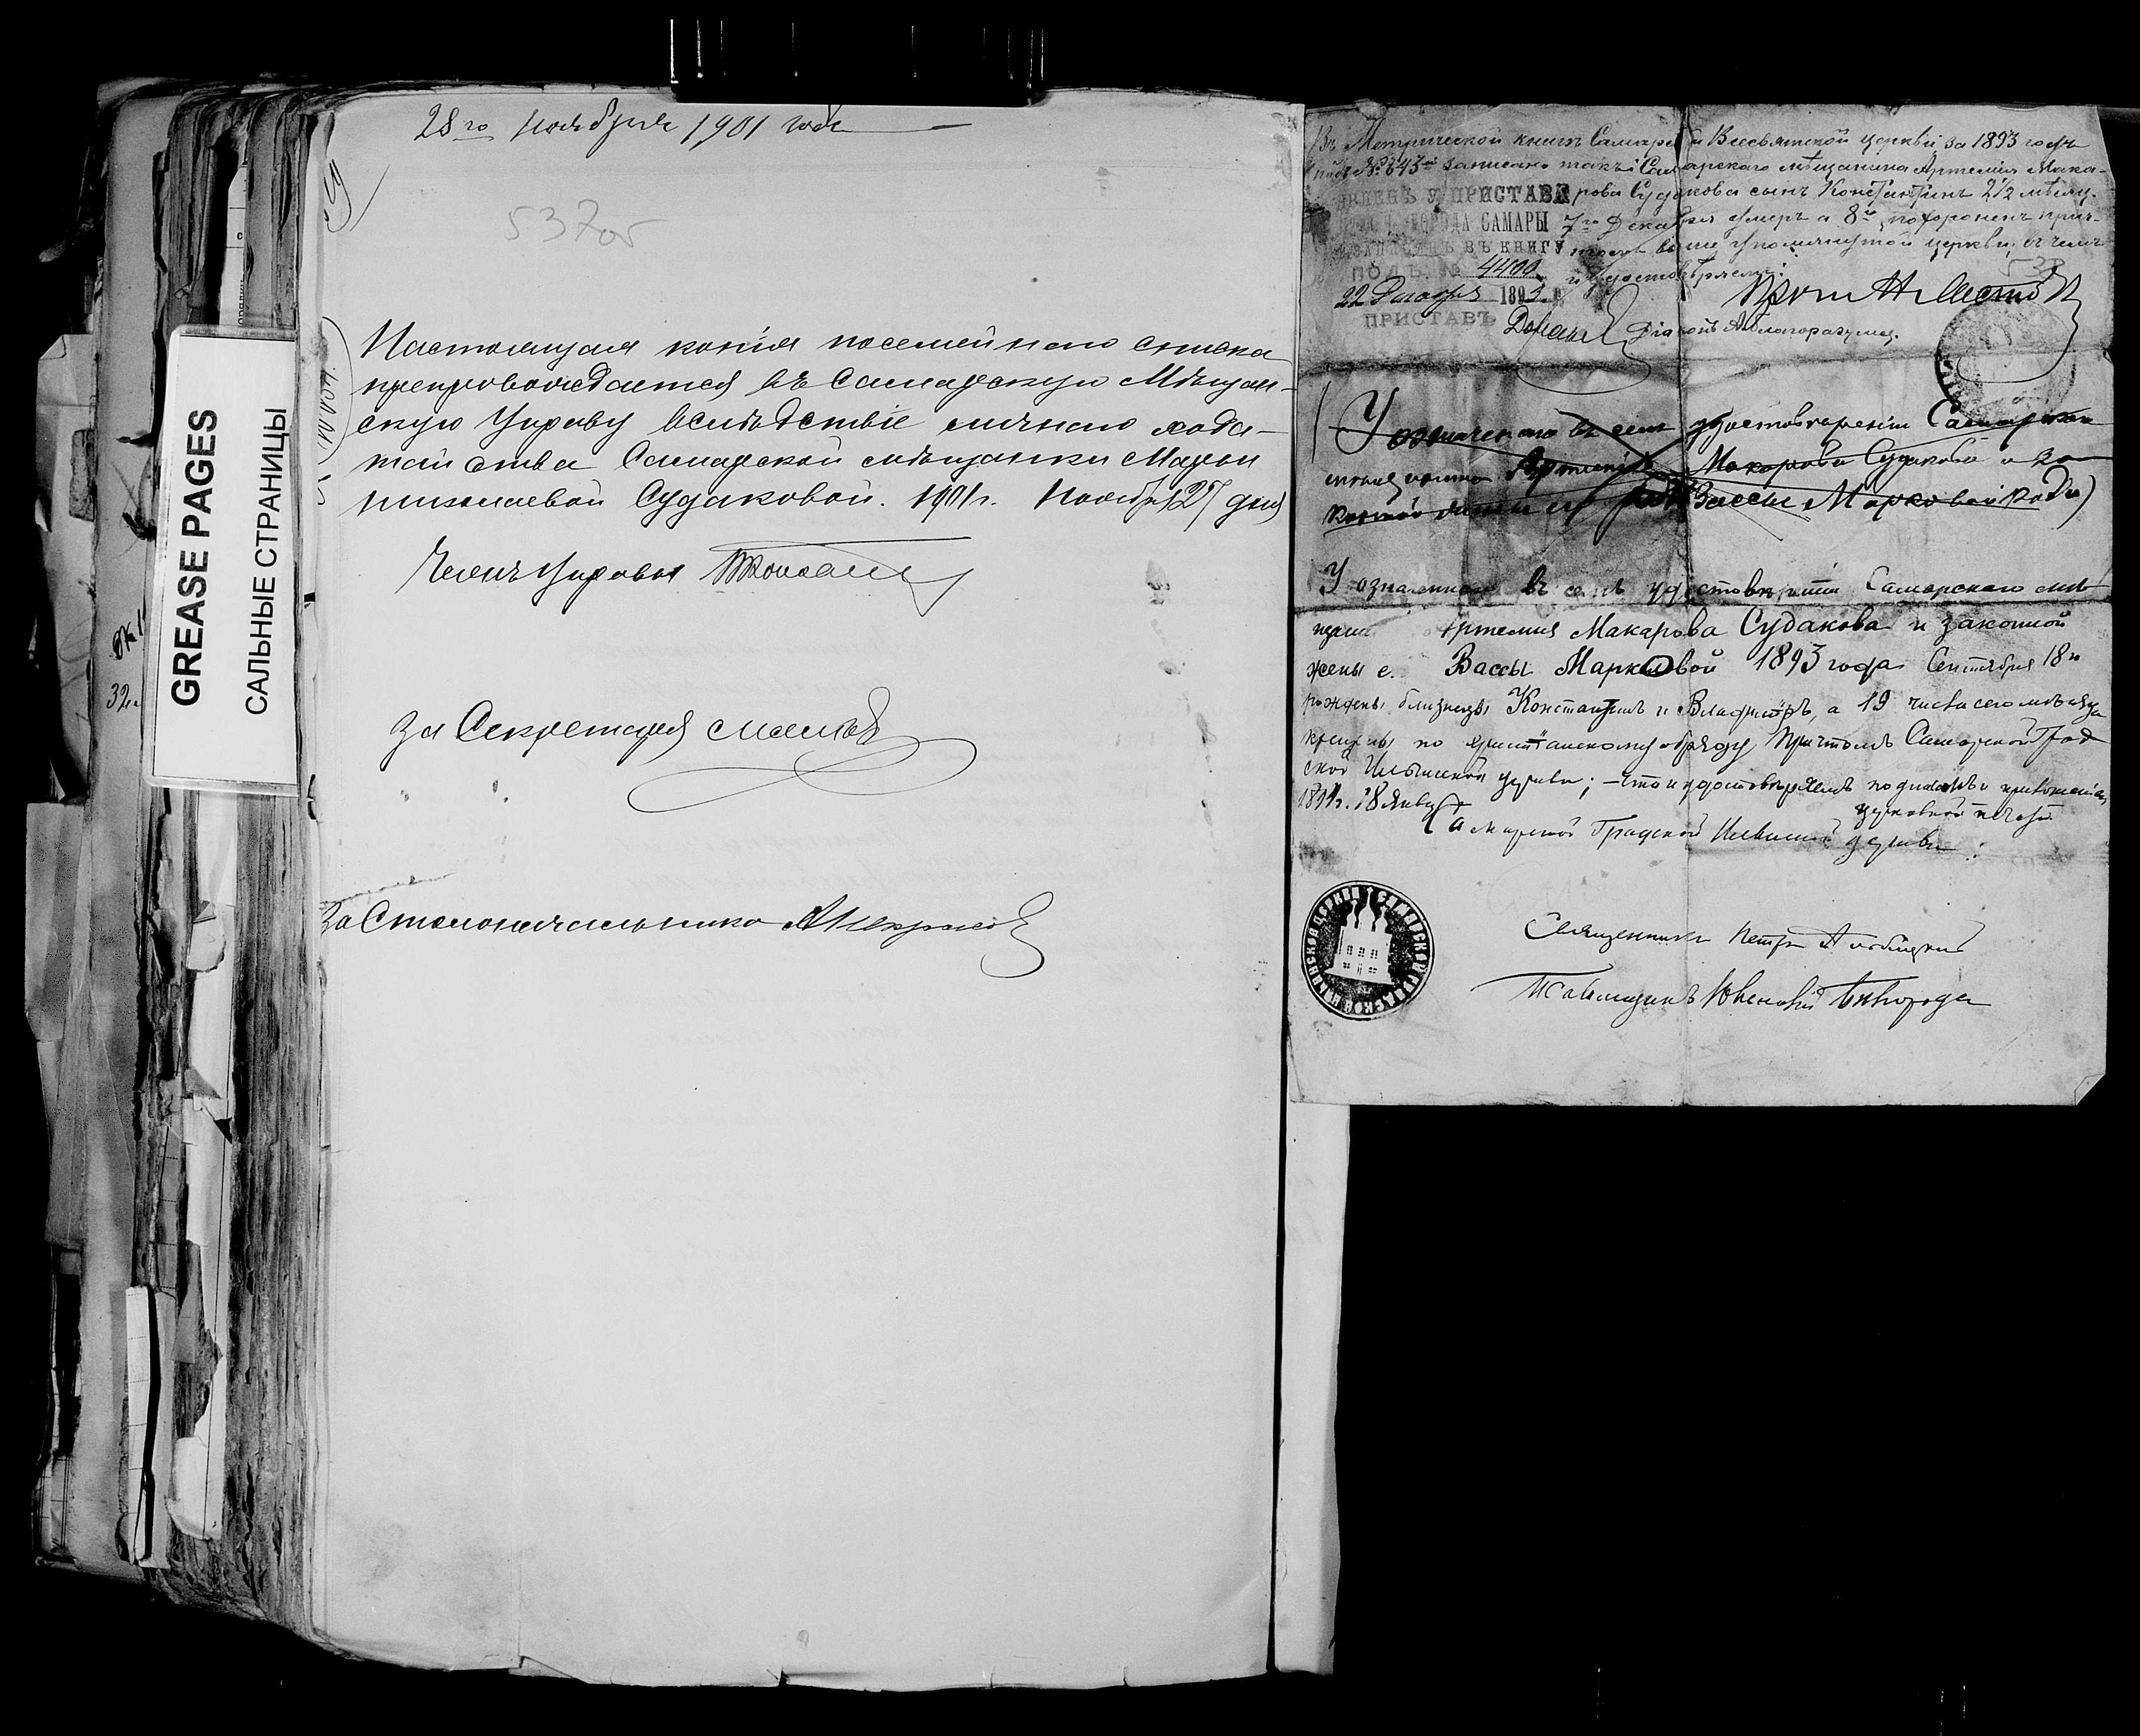 GREASE PAGES
САЛЬНЫЕ СТРАНИЦЫ
28го Ноября 1901 года
537об
Настоящая копія посемейнаго списка
препровождается въ Самарскую Мѣщан-
скую Управу вслѣдствіе личнаго хода-
тайства Самарской мѣщанки Марьи
Николаевой Судаковой. 1901 г. Ноября 27 дня
Членъ Управы
За Секретаря
За Столоначальника
Въ Метрической книгѣ Самарской Всесвятской церкви за 1893 годъ
подъ № 643 записано такъ: Самарскаго мѣщанина Артемія Мака-
рова Судакова сынъ Константинъ 2 1/2 мѣсяц.
7го Декабря умеръ а 8го похороненъ прич-
томъ выше упомянутой церкви, въ чемъ
и удостовѣряемъ:
ЯВЛЕНЪ У ПРИСТАВА
ГОРОДА САМАРЫ
И ЗАПИСАНЪ ВЪ КНИГУ
ПОДЪ № 4400
22 Декабря 1893 г.
ПРИСТАВЪ
538
Діаконъ А. Благоразумов.
У означеннаго въ семъ удостовѣреніи Самарскаго
мѣщанина Артемія Макарова Судакова и за-
конной жены его Вассы Марковой
У означеннаго въ семъ удостовѣреніи Самарскаго мѣ-
щанина Артемия Макарова Судакова и законной
жены е. Вассы Марковой 1893 года Сентября 18го
рождены близнецы Константинъ и Владимiръ, а 19 числа сего мѣсяца
крещены по христіанскому обряду Причтомъ Самарской Град
ской Ильинской церкви; – что и удостовѣряемъ подписомъ и приложеніемъ
церковной печати
1894 г. 18 Январ
Самарской Градской Ильинской церкви:
Священникъ Петръ
Псаломщикъ